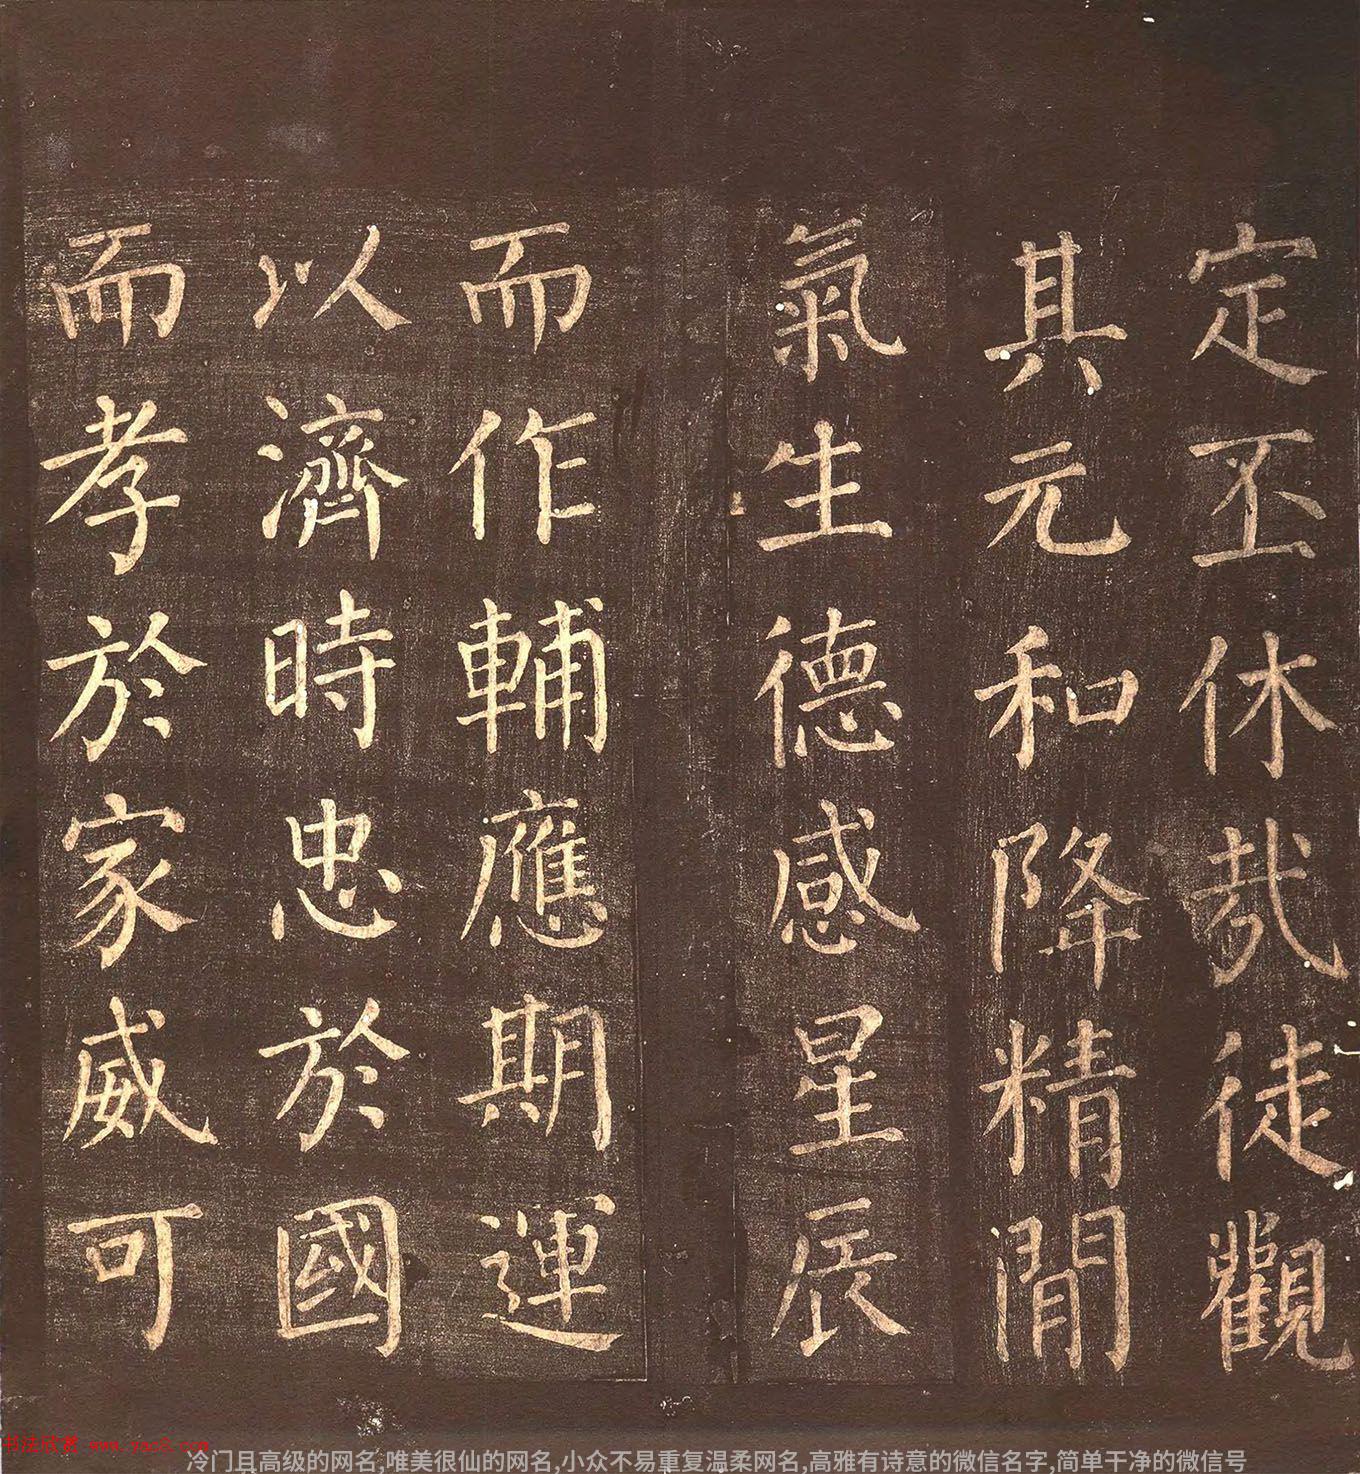 定丕休哉徒觀
其元和降精閒
氣生德感星辰
而作輔應期運
以濟時忠於國
而孝於家威可
书法欣赏 www.yac8.com
冷门且高级的网名,唯美很仙的网名,小众不易重复温柔网名,高雅有诗意的微信名字,简单干净的微信号